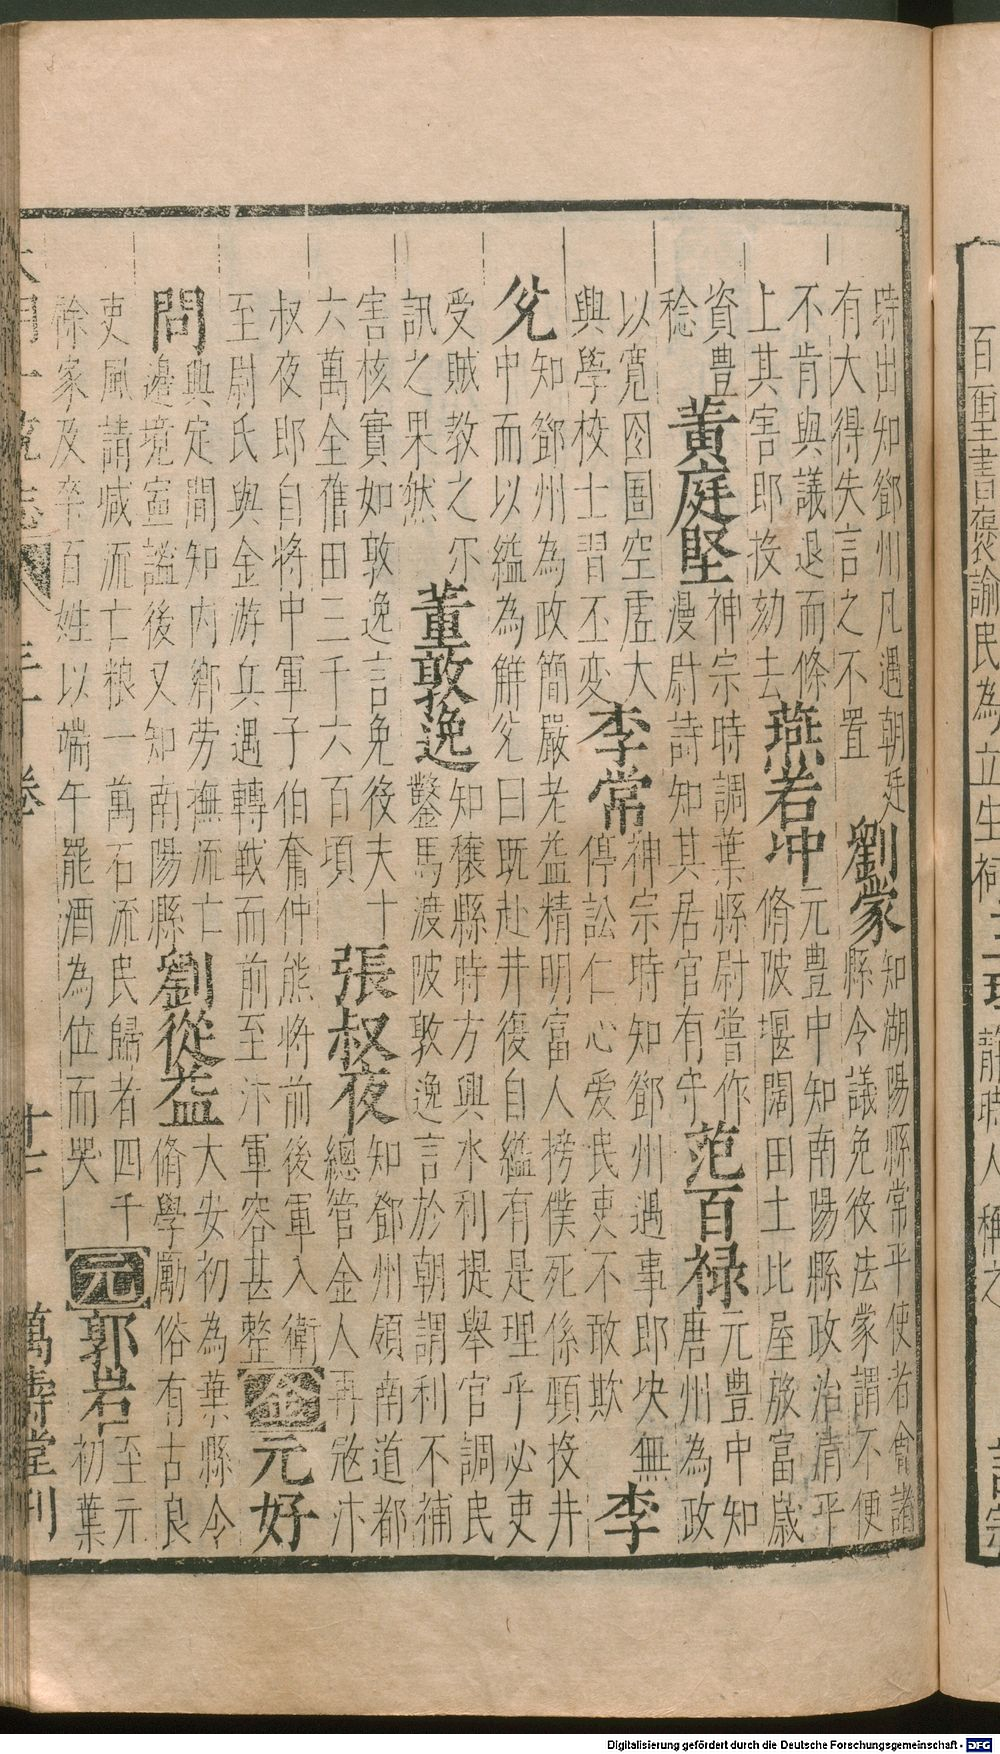 時出知鄧州凡遇朝廷
有大得失言之不置
劉蒙
知湖陽縣常平使者會諸
縣令議免役法蒙謂不便
不肯與議退而條
上其害即投劾去
燕若坤
元豐中知南陽縣政治清平
脩陂堰闢田土比屋殷富歲
資豊
稔
黃庭堅
神宗時調葉縣尉嘗作
漫尉詩知其居官有守
范百禄
元豊中知
唐州為政
以寬囹圄空虛大
興學校士習丕變
李常
神宗時知鄧州遇事即決無
停訟仁心愛民吏不敢欺
李
兌
知鄧州為政簡嚴老益精明富人搒僕死係頸投井
中而以縊為解兌曰既赴井復自縊有是理乎必吏
受賊教之尒
訊之果然
董敦逸
知穰縣時方興水利提舉官調民
鑿馬渡陂敦逸言於朝謂利不補
害核實如敦逸言免役夫十
六萬全舊田三千六百頃
張叔夜
知鄧州領南道都
總管金人再冦汴
叔夜即自將中軍子伯奮仲熊將前後軍入衛
至尉氏與金游兵遇轉戰而前至汴軍容甚整
金
元好
問
興定間知内鄉勞撫流亡
邊境寧謐後又知南陽縣
劉從益
大安初為葉縣令
脩學勵俗有古良
吏風請減流亡粮一萬石流民歸者四千
餘家及卒百姓以端午罷酒為位而哭
元
郭岩
至元
初葉
大明一統志
三十卷
十七
萬壽堂刋
Digitalisierung gefördert durch die Deutsche Forschungsgemeinschaft - DFG